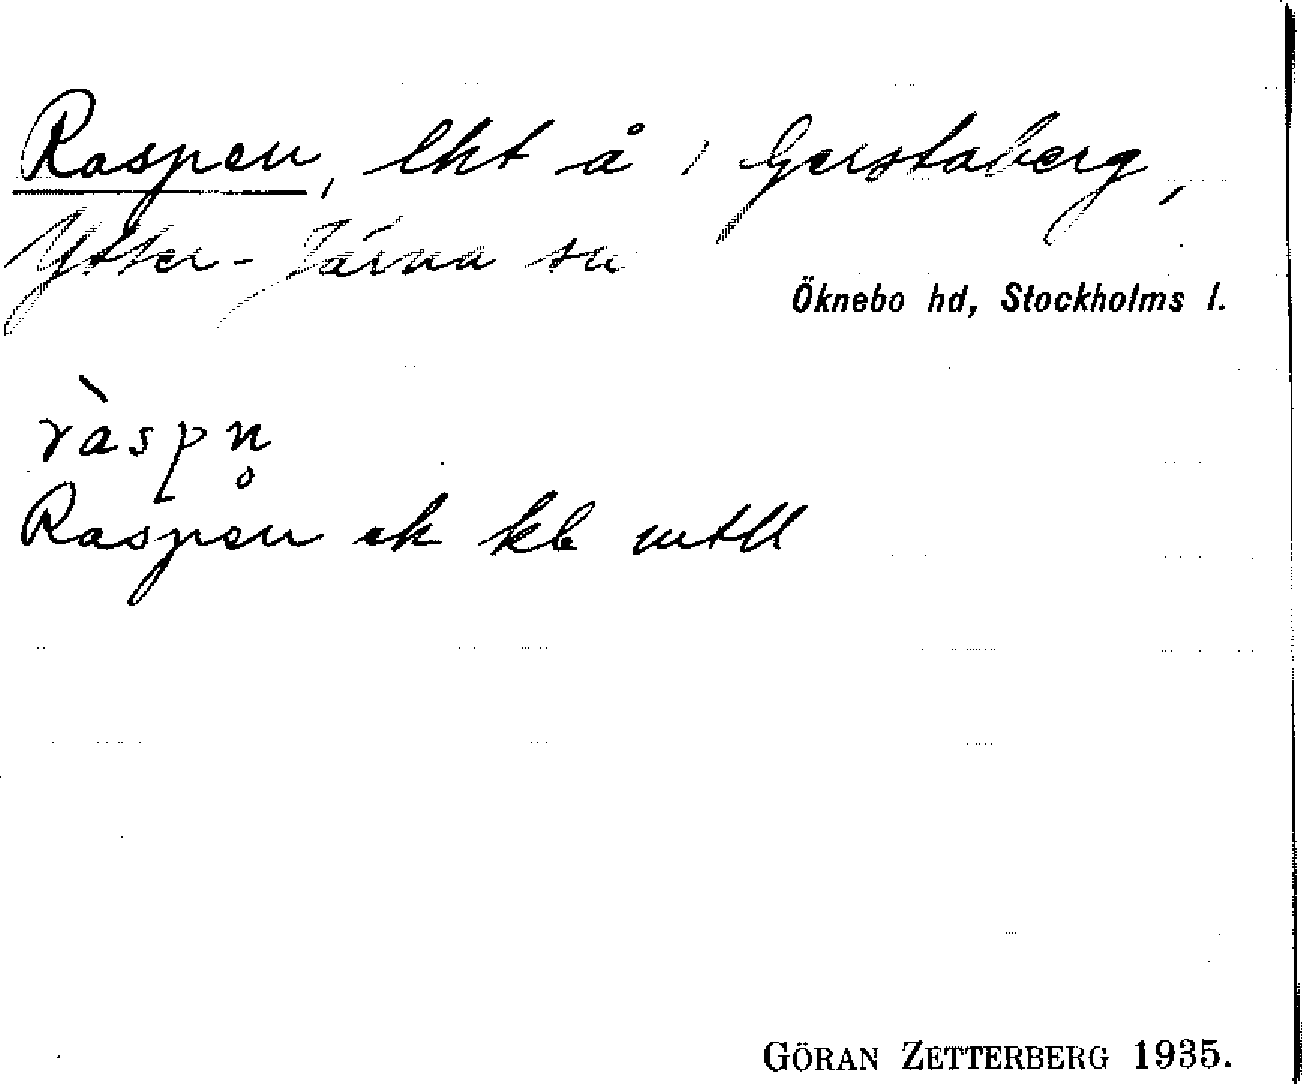 Raspen, lht å i Gerstaberg,
Ytter-Järna sn
Öknebo hd, Stockholms l.
ràspn̥
Raspen ek kb mtll
GÖRAN ZETTERBERG 1935.